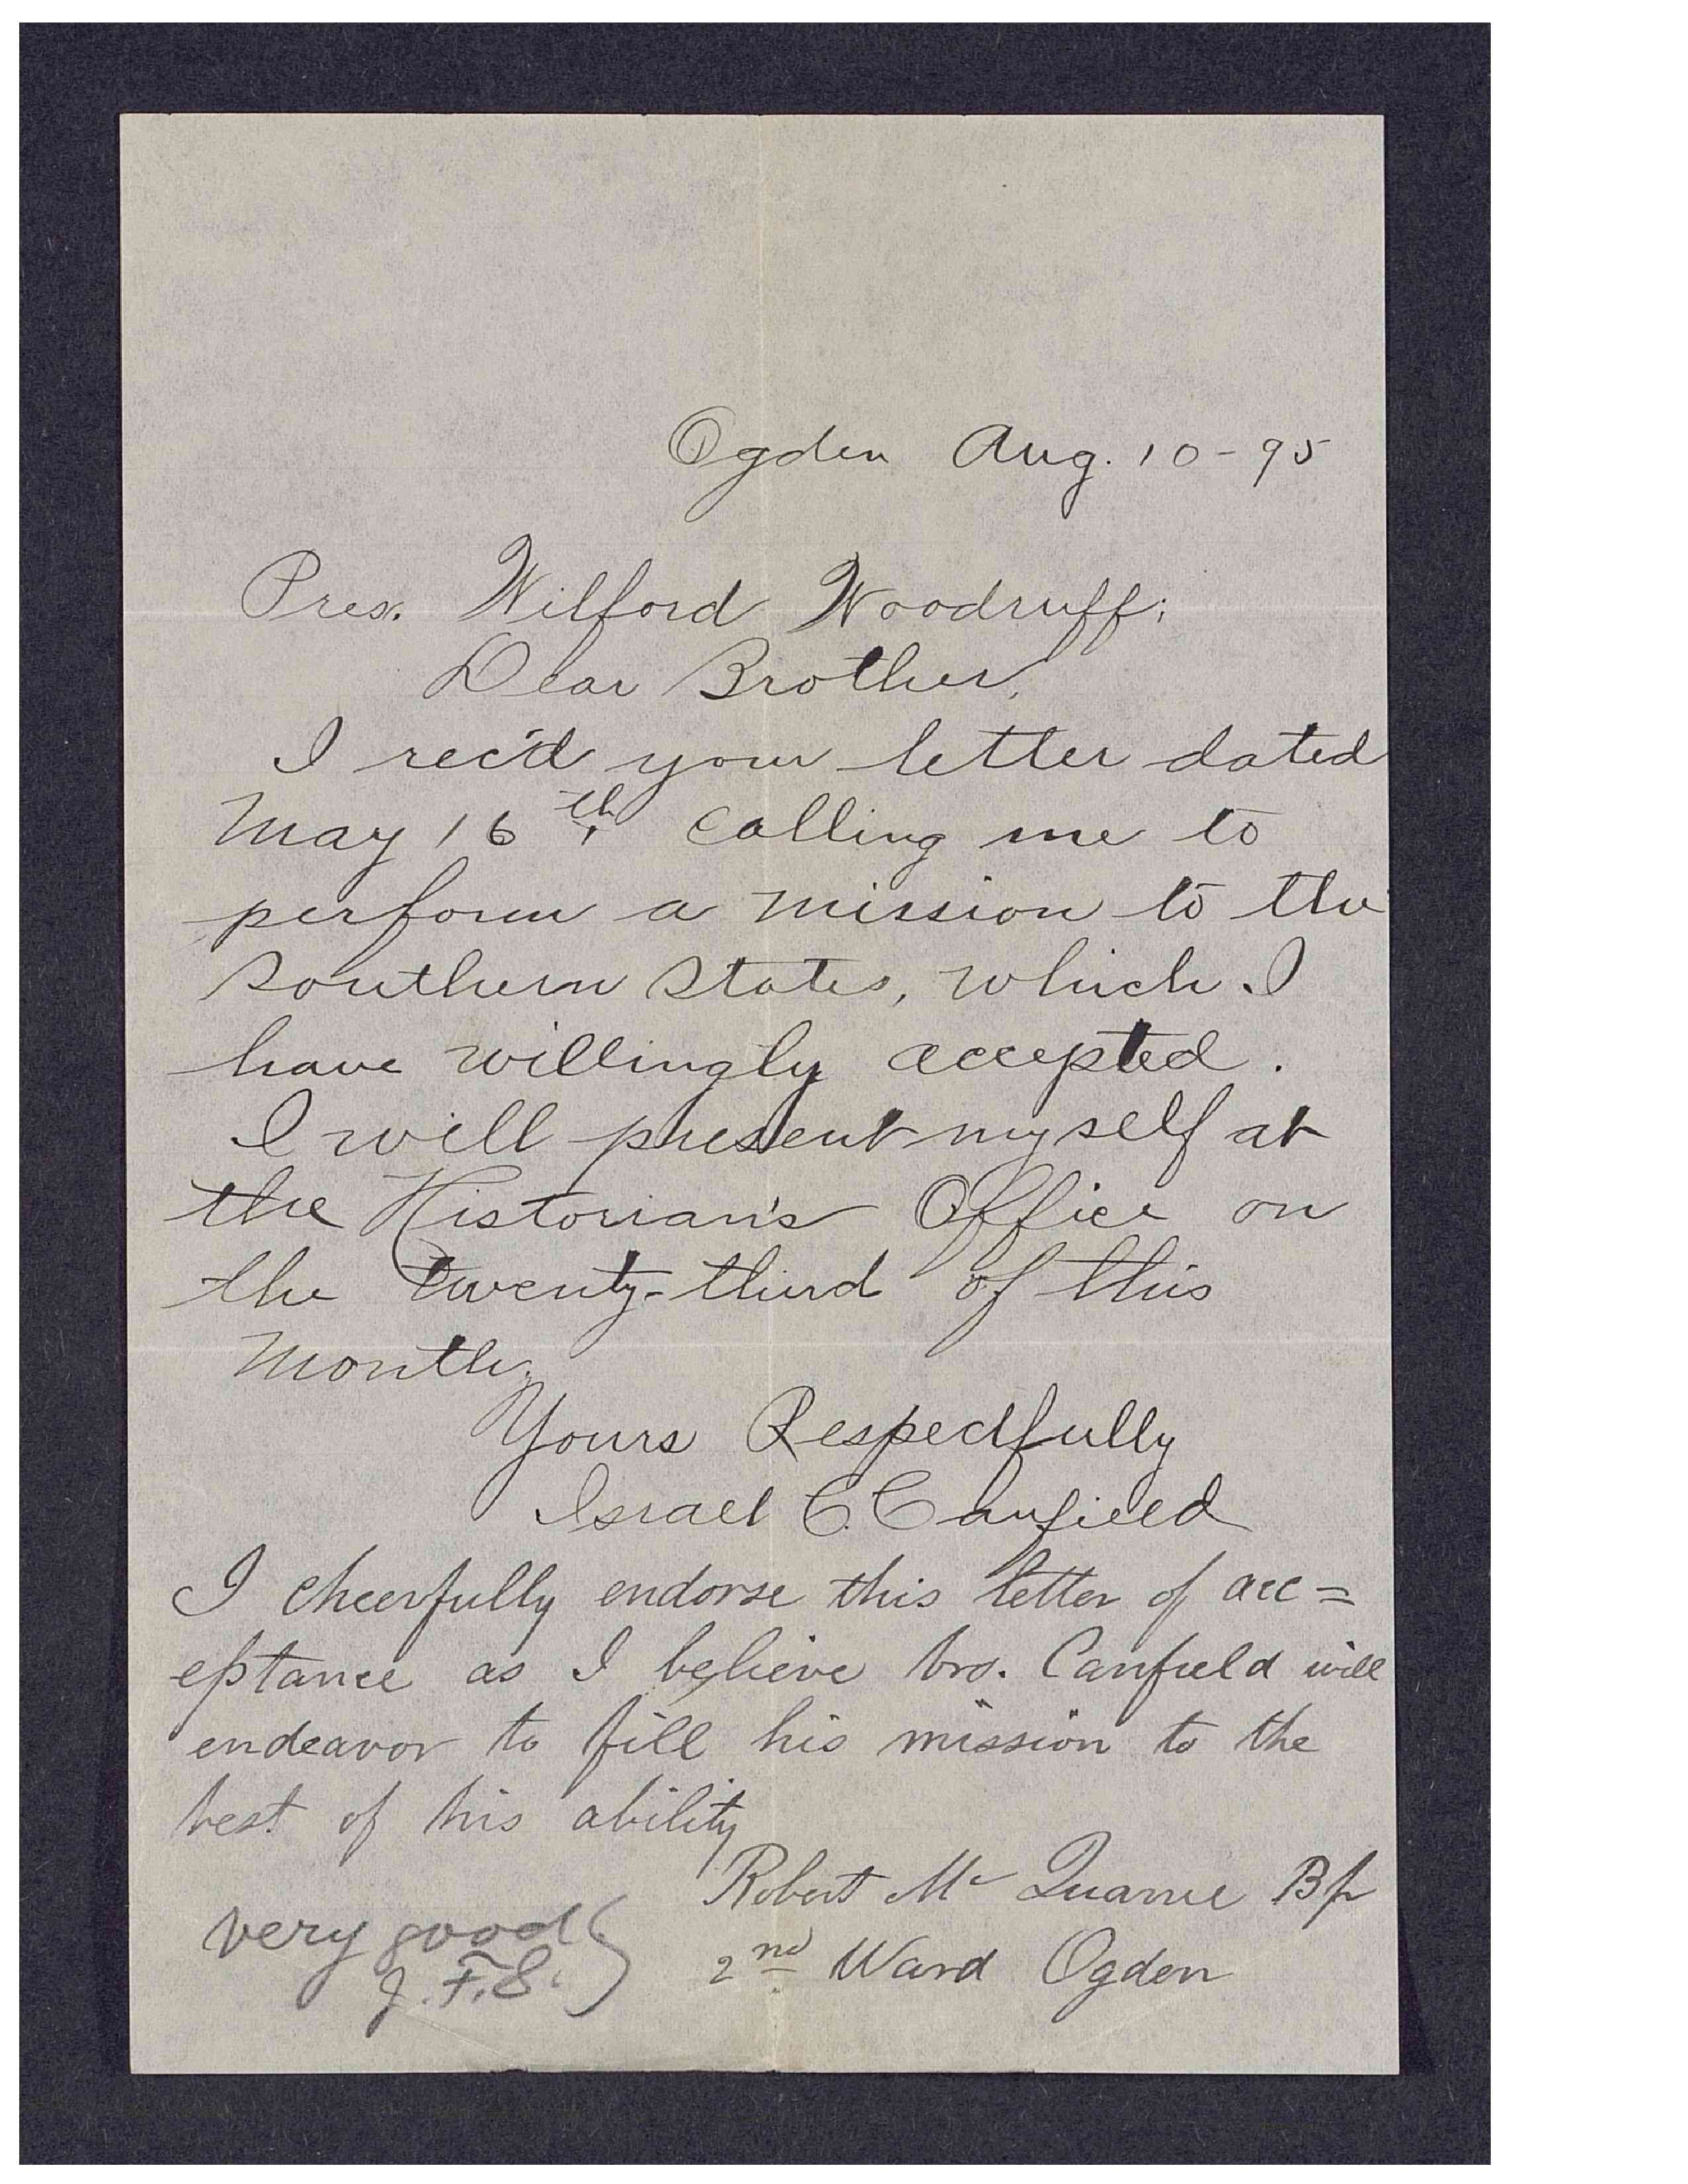 Ogden Aug. 10-95
Pres. Wilford Woodruff;
Dear Brother,
I rec'd your letter dated
May 16th, calling me to
perform a mission to the
Southern States, which I
have willingly accepted.
I will present myself at
the Historian's Office on
the twenty-third of this
month,
Yours Respectfully
Israel C. Canfield
I cheerfully endorse this letter of acc=
eptance as I believe bro. Canfield will
endeavor to fill his mission to the
best of his ability
Robert Mc Quarrie Bp
2nd Ward Ogden
very good
J. F. S.